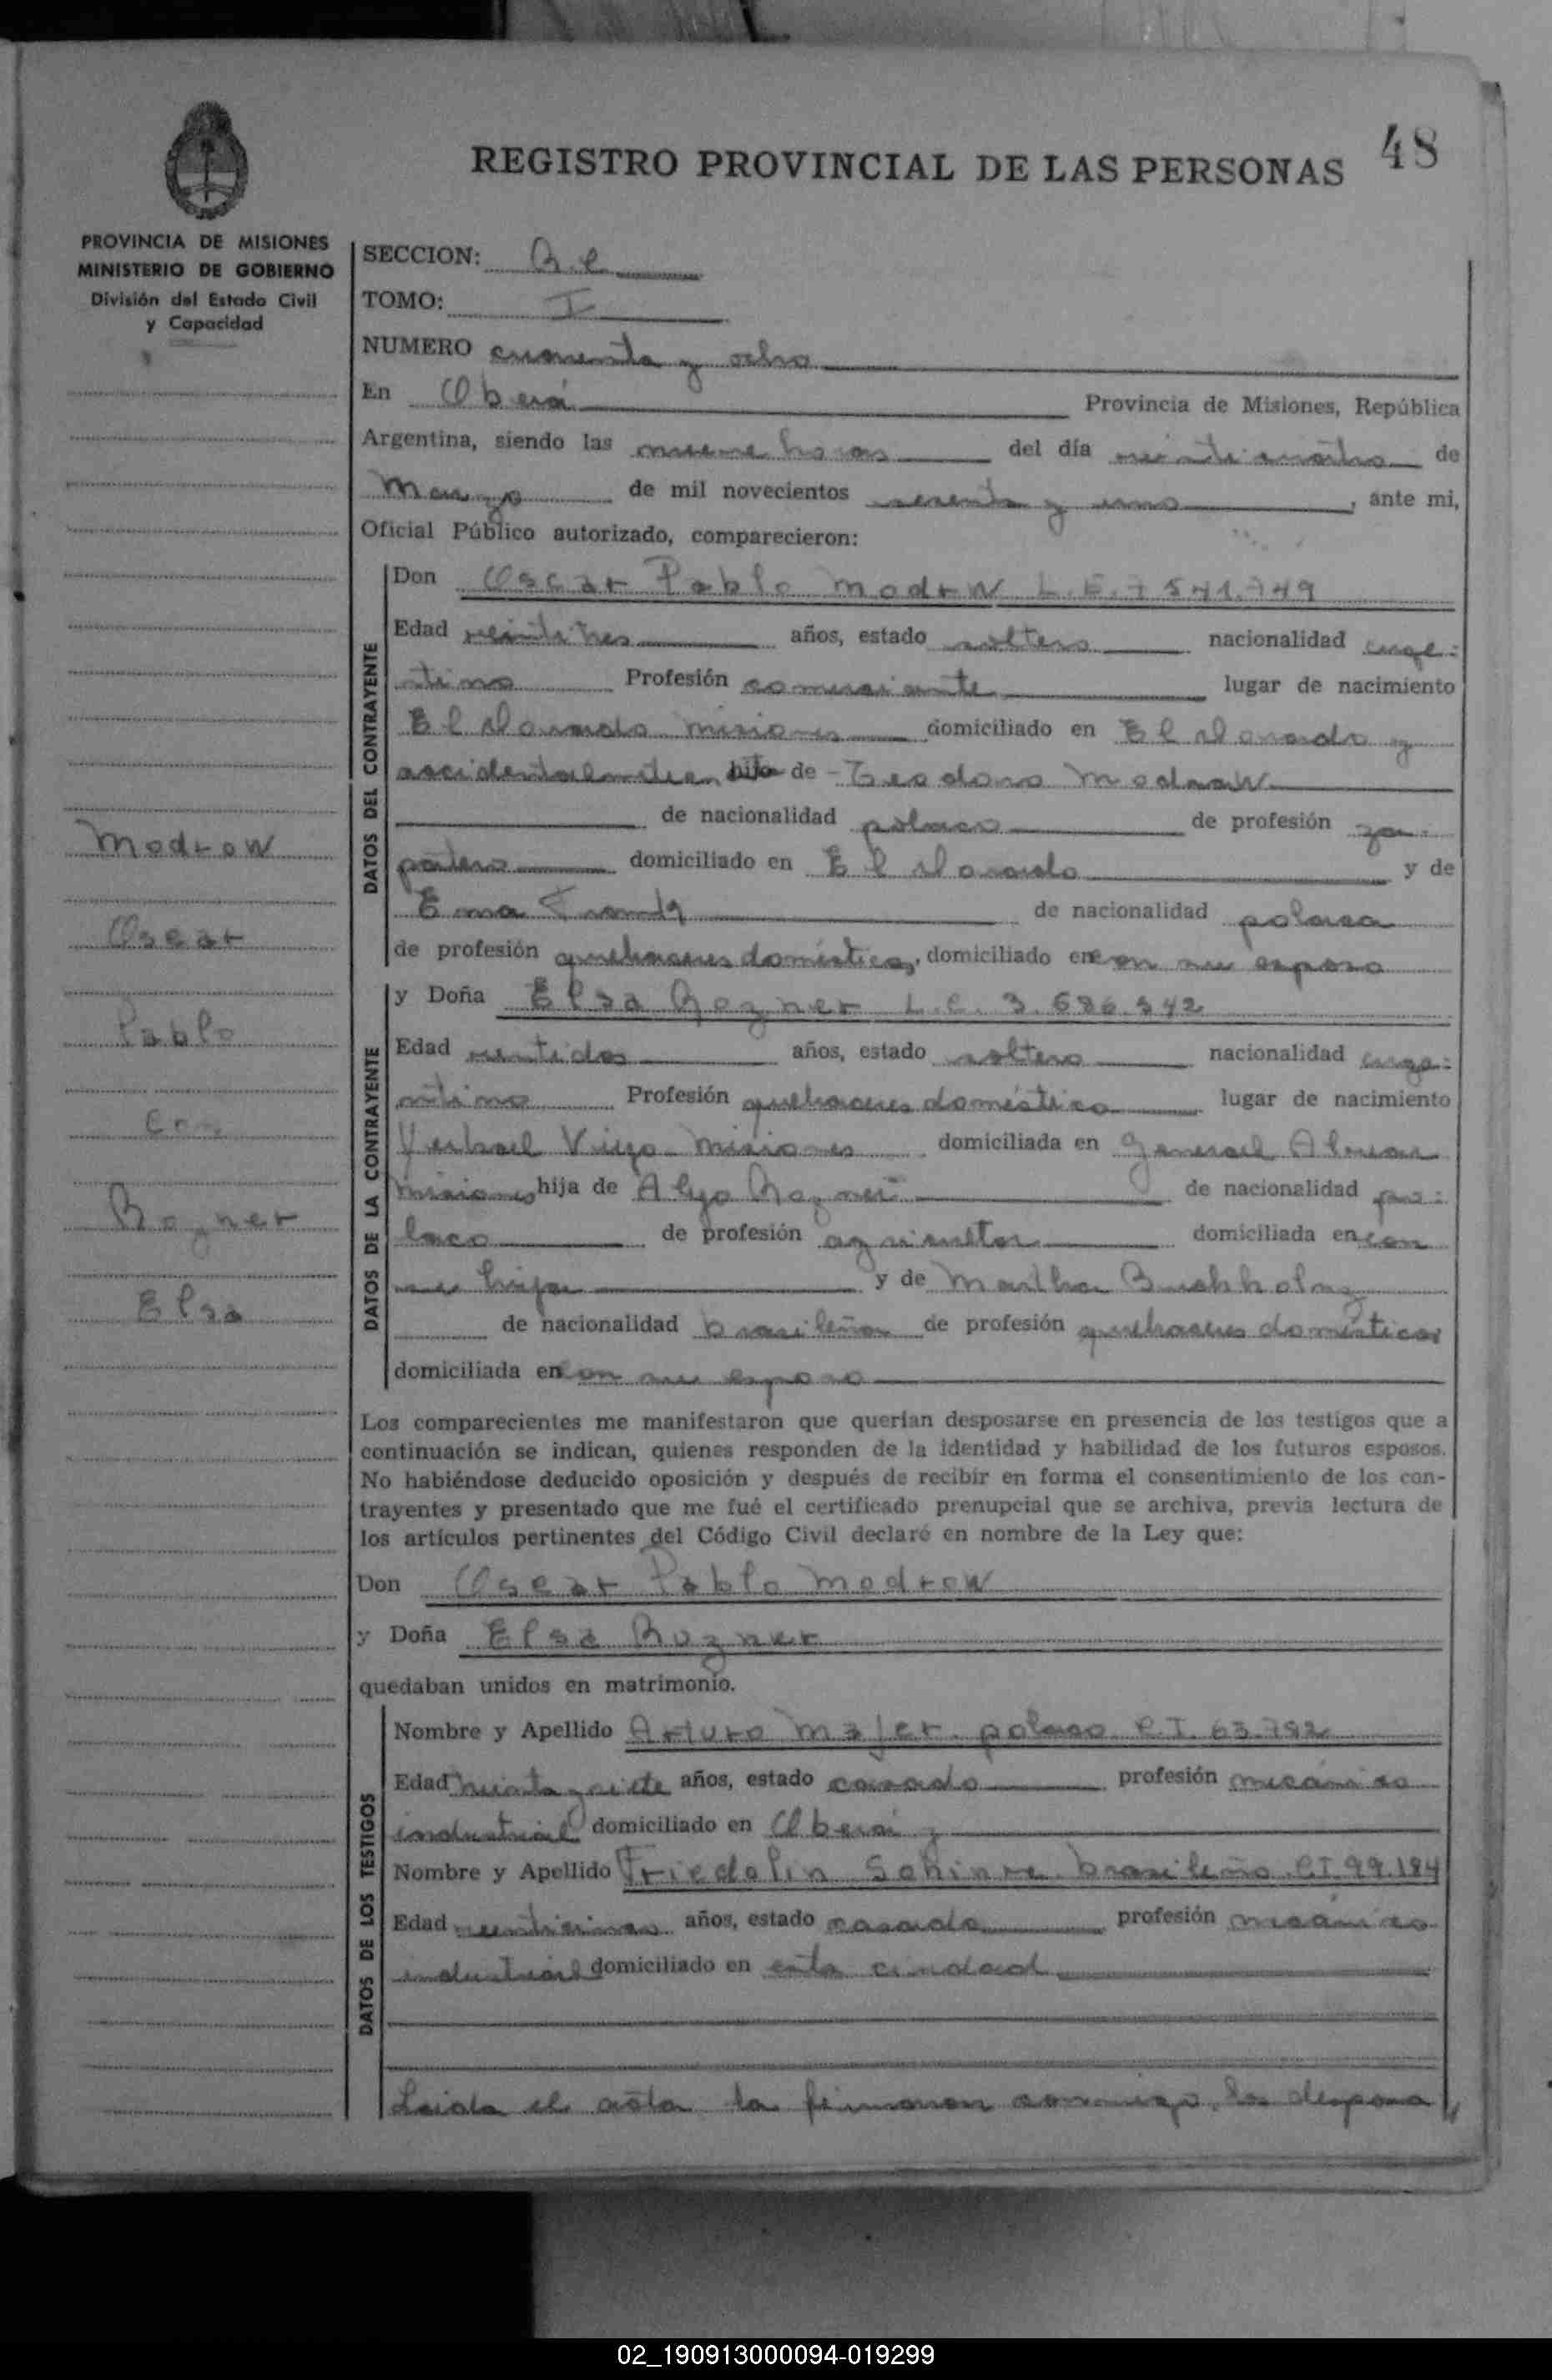 48
REGISTRO PROVINCIAL DE LAS PERSONAS
PROVINCIA DE MISIONES
MINISTERIO DE GOBIERNO
División del Estado Civil
y Capacidad
SECCION:
TOMO: I
NUMERO cuarenta y ocho
En Oberá Provincia de Misiones, República
Argentina, siendo las nueve horas del día veinticuatro de
Marzo de mil novecientos sesenta y uno, ante mi,
Oficial Público autorizado, comparecieron:
DATOS DEL CONTRAYENTE
Don Oscar Pablo Modrw L.E. 7 541.749
Edad veintitres años, estado soltero nacionalidad arge-
ntino Profesión comerciante lugar de nacimiento
El dorado Misiones domiciliado en El dorado y
hijo de Teodoro Modraw
de nacionalidad polaco de profesión za-
patero domiciliado en El dorado y de
Ema de nacionalidad polaca
de profesión quehaceres domésticos, domiciliado en con su esposo
DATOS DE LA CONTRAYENTE
y Doña Elsa Rozner L.C. 3.686.342
Edad veintidos años, estado soltera nacionalidad arge-
ntina Profesión quehaceres domésticos lugar de nacimiento
Yerbal Viejo Misiones domiciliada en General Alvear
Misiones hija de Rozner de nacionalidad po-
laco de profesión agricultor domiciliada en con
su hija y de Martha Buchholz
de nacionalidad brasileña de profesión quehaceres domésticos
domiciliada en con su esposo
Los comparecientes me manifestaron que querían desposarse en presencia de los testigos que a
continuación se indican, quienes responden de la identidad y habilidad de los futuros esposos.
No habiéndose deducido oposición y después de recibir en forma el consentimiento de los con-
trayentes y presentado que me fué el certificado prenupcial que se archiva, previa lectura de
los artículos pertinentes del Código Civil declaré en nombre de la Ley que:
Don Oscar Pablo Modrow
y Doña Elsa Rozner
quedaban unidos en matrimonio.
DATOS DE LOS TESTIGOS
Nombre y Apellido Arturo Majer polaco C.I. 63.792
Edad treinta y siete años, estado casado profesión mecánico
industrial domiciliado en Oberá y
Nombre y Apellido Friedolin brasileño C.I. 99.184
Edad años, estado casado profesión mecánico
industrial domiciliado en esta ciudad
Leida el acta la firmaron conmigo, los desposa
Modrow
Oscar
Pablo
Con
Rozner
Elsa
02_190913000094-019299